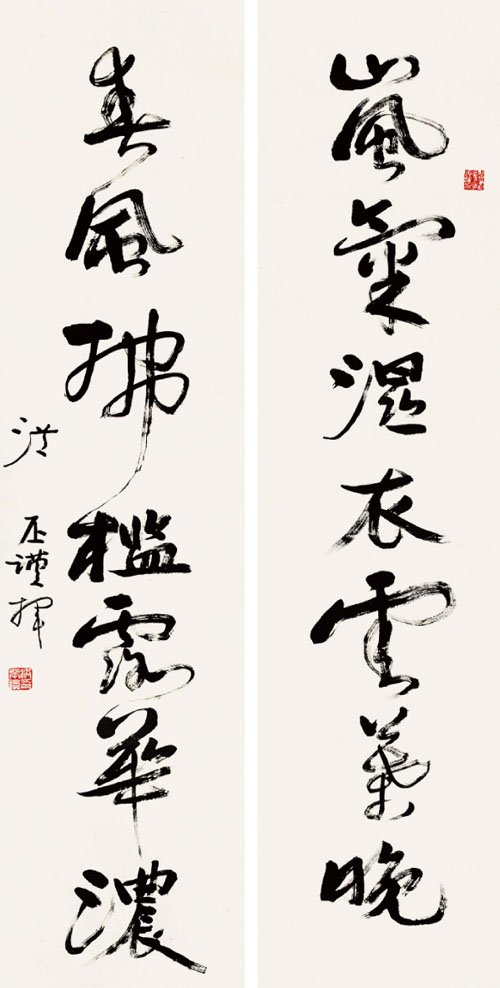 嵐氣濕衣雲葉晚
春風拂檻露華濃
洪丕謨揮